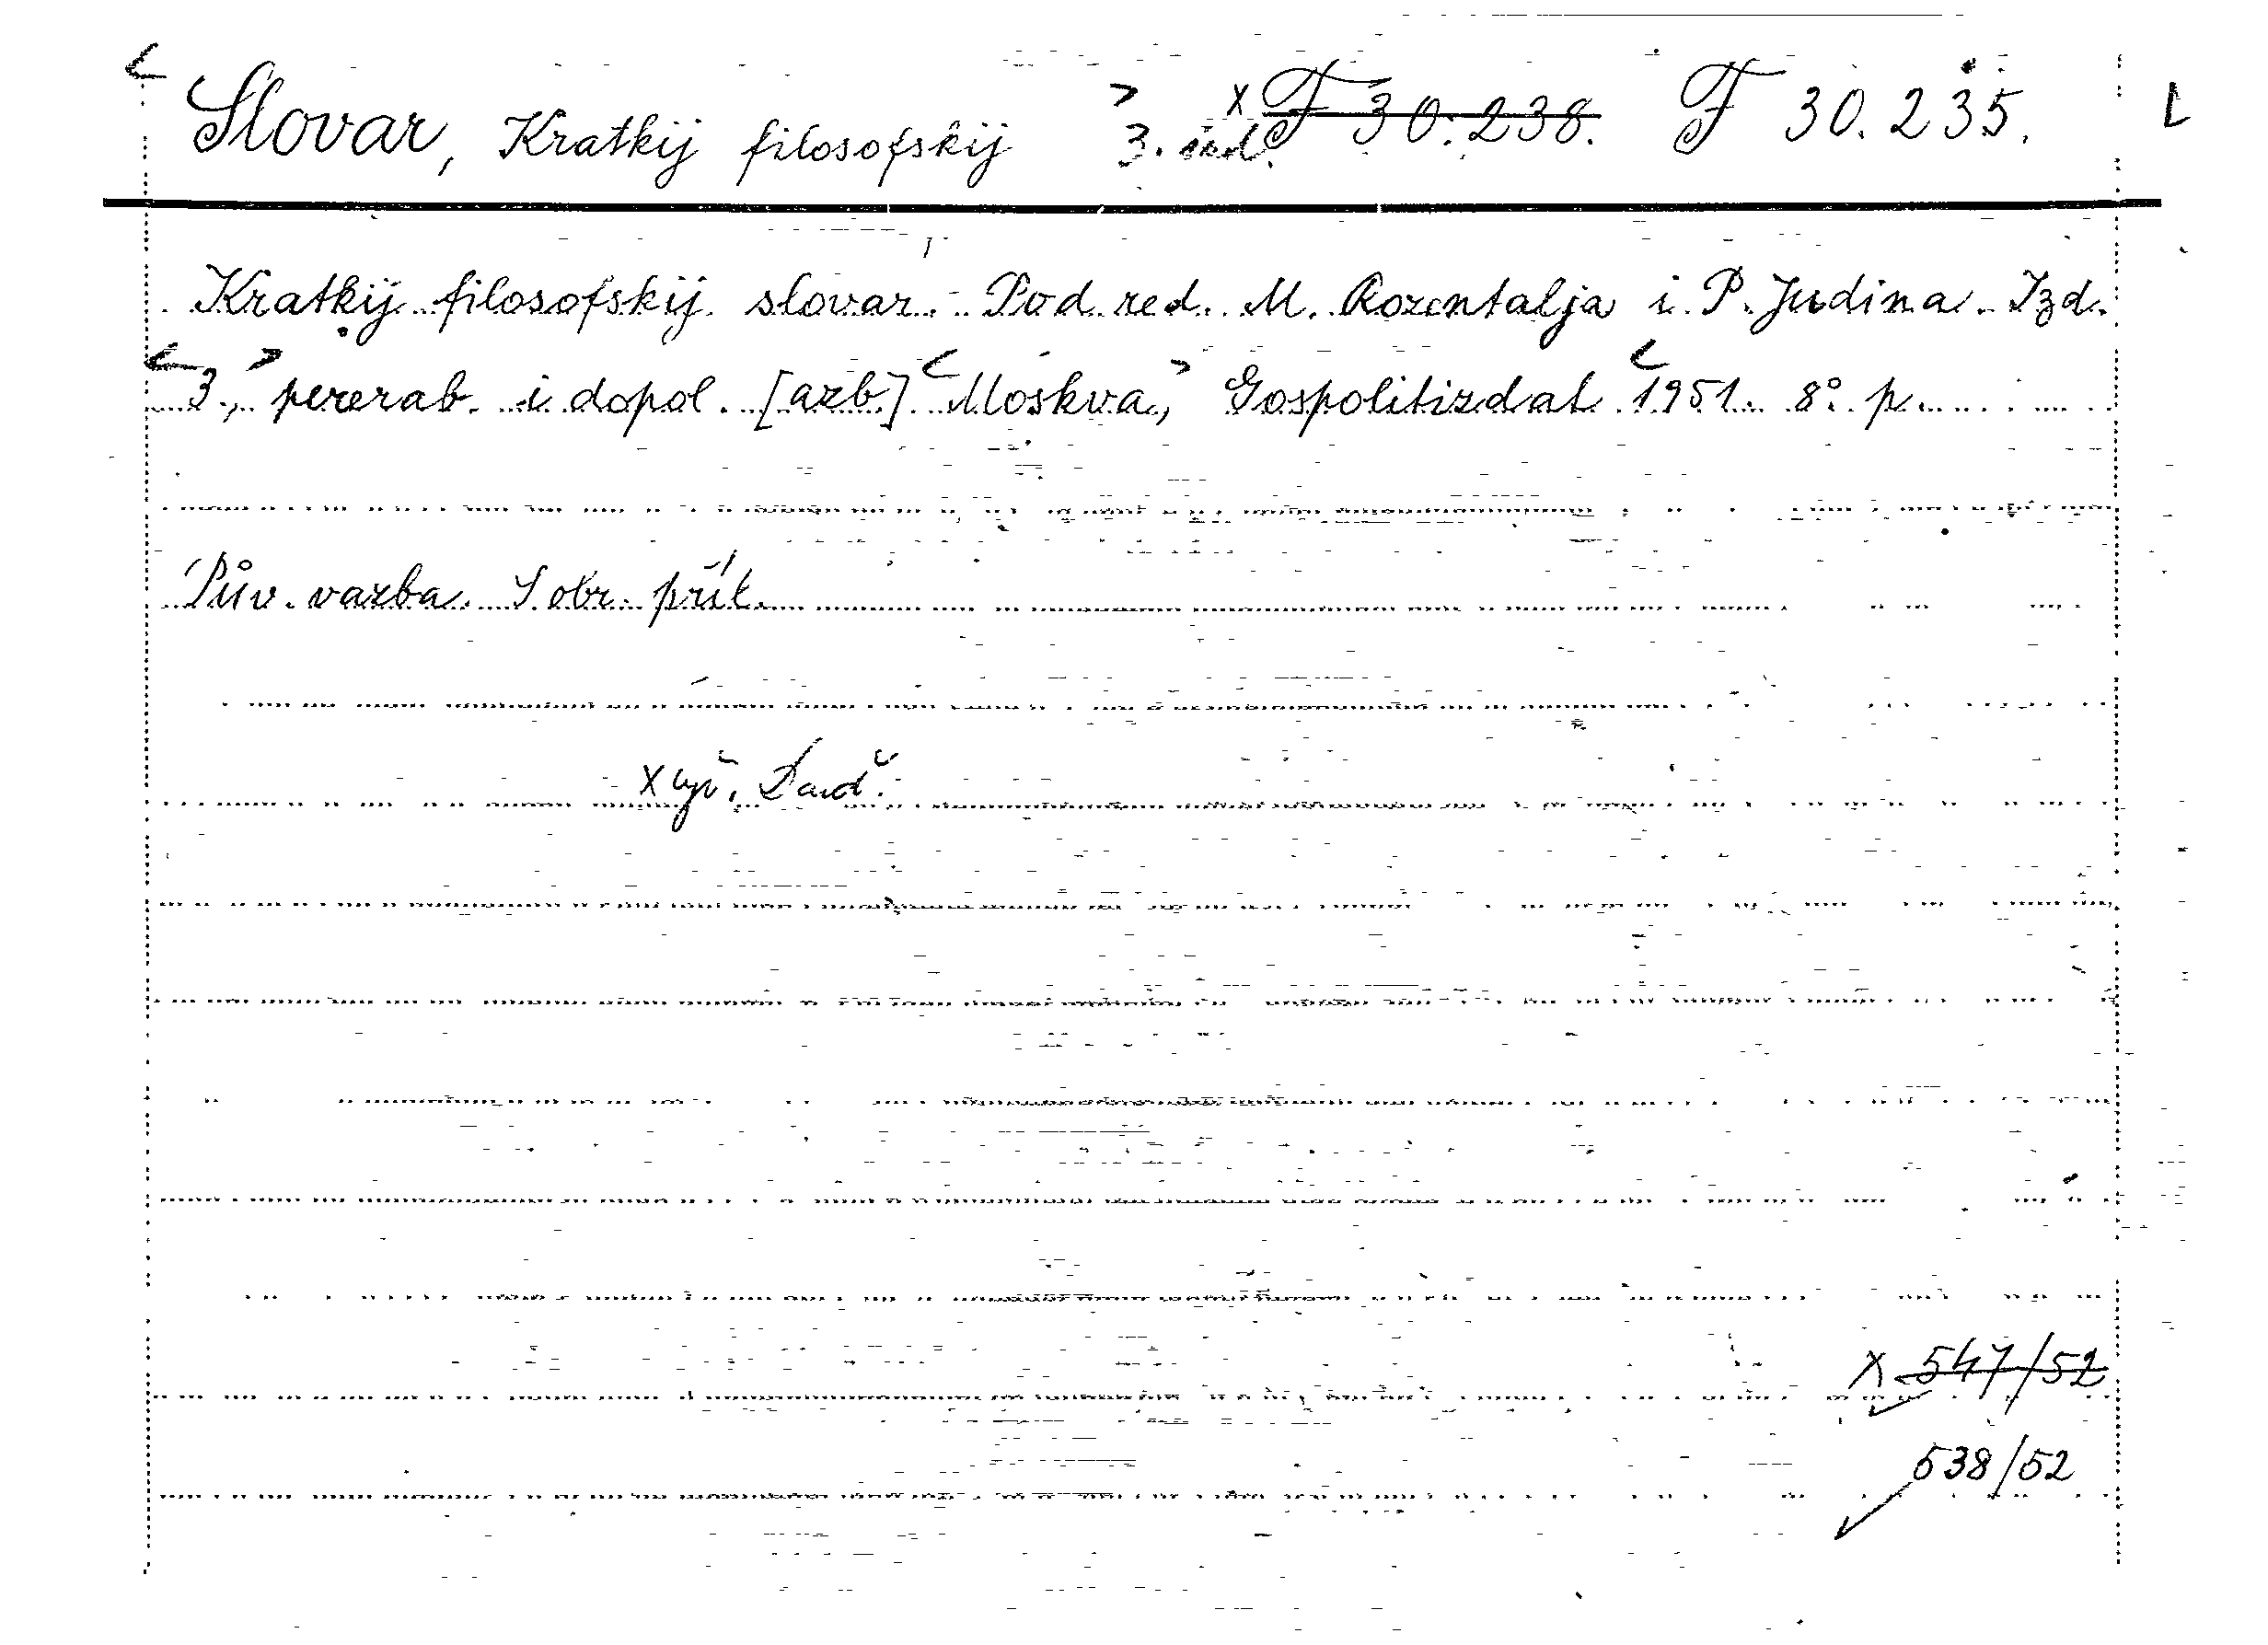 Slovar, Kratkij filosofskij 3. izd. x F 30.238. F 30.235. L
Kratkij filosofskij slovar. Pod red. M. Rozentalja i P. Judina. Izd.
3., pererab. i dopol. [azb.] Moskva, Gospolitizdat 1951. 8° p.
Pův. vazba. S obr. příl.
x
x 547/52
538/52